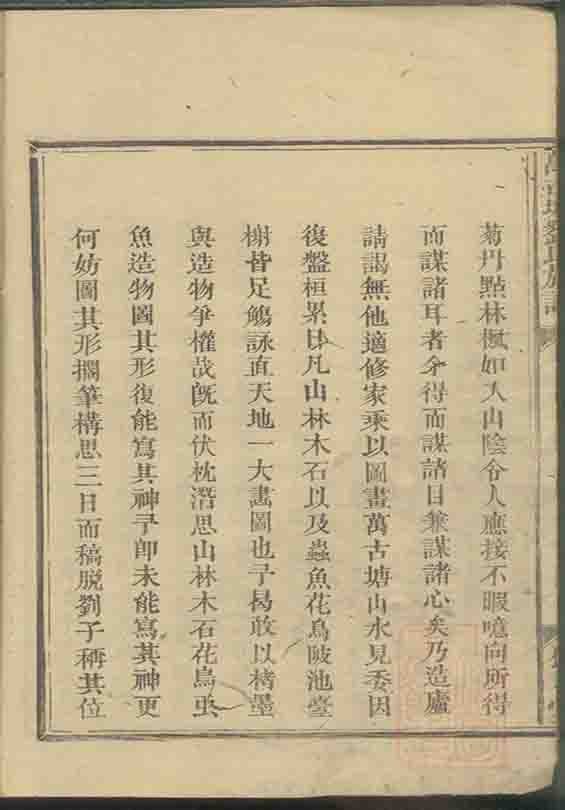 菊丹點林楓如入山陰令人應接不暇噫向所得
而謀諸耳者今得而謀諸目兼謀諸心矣乃造廬
請謁無他適修家乘以圖畫萬古塘山水見委因
復盤桓累日凡山林木石以及蟲魚花鳥陂池臺
榭皆足觴詠直天地一大畵圖也予曷敢以楮墨
與造物爭權哉旣而伏枕潛思山林木石花鳥虫
魚造物圖其形復能寫其神予卽未能寫其神更
何妨圖其形擱筆構思三日而稿脫劉子稱其位
劉氏族譜